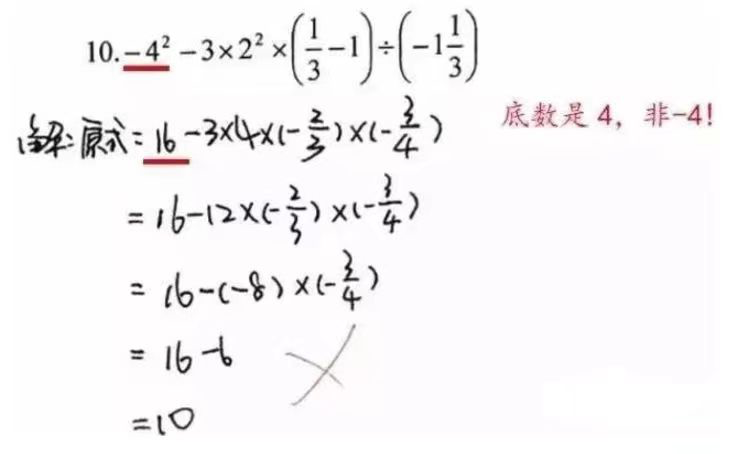 10. −4² − 3×2²×(1/3 − 1)÷(−1 1/3)
解:原式=16−3×4×(−2/3)×(−3/4)
底数是 4，非-4!
=16−12×(−2/3)×(−3/4)
=16−(−8)×(−3/4)
=16−6
=10